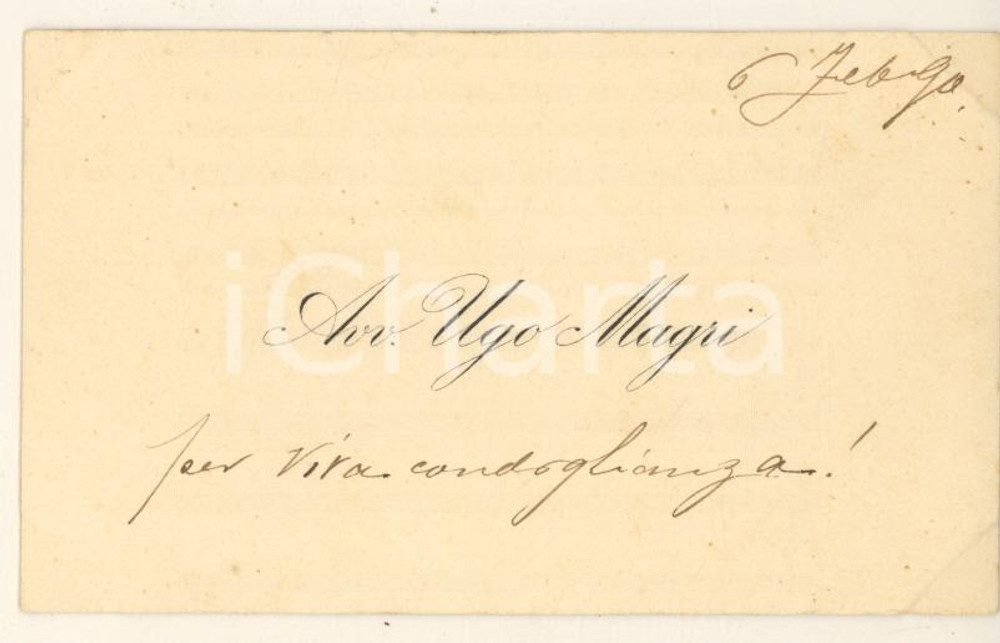 6 Feb. 90.
Avv. Ugo Magri
per viva condoglianza!
iCharta